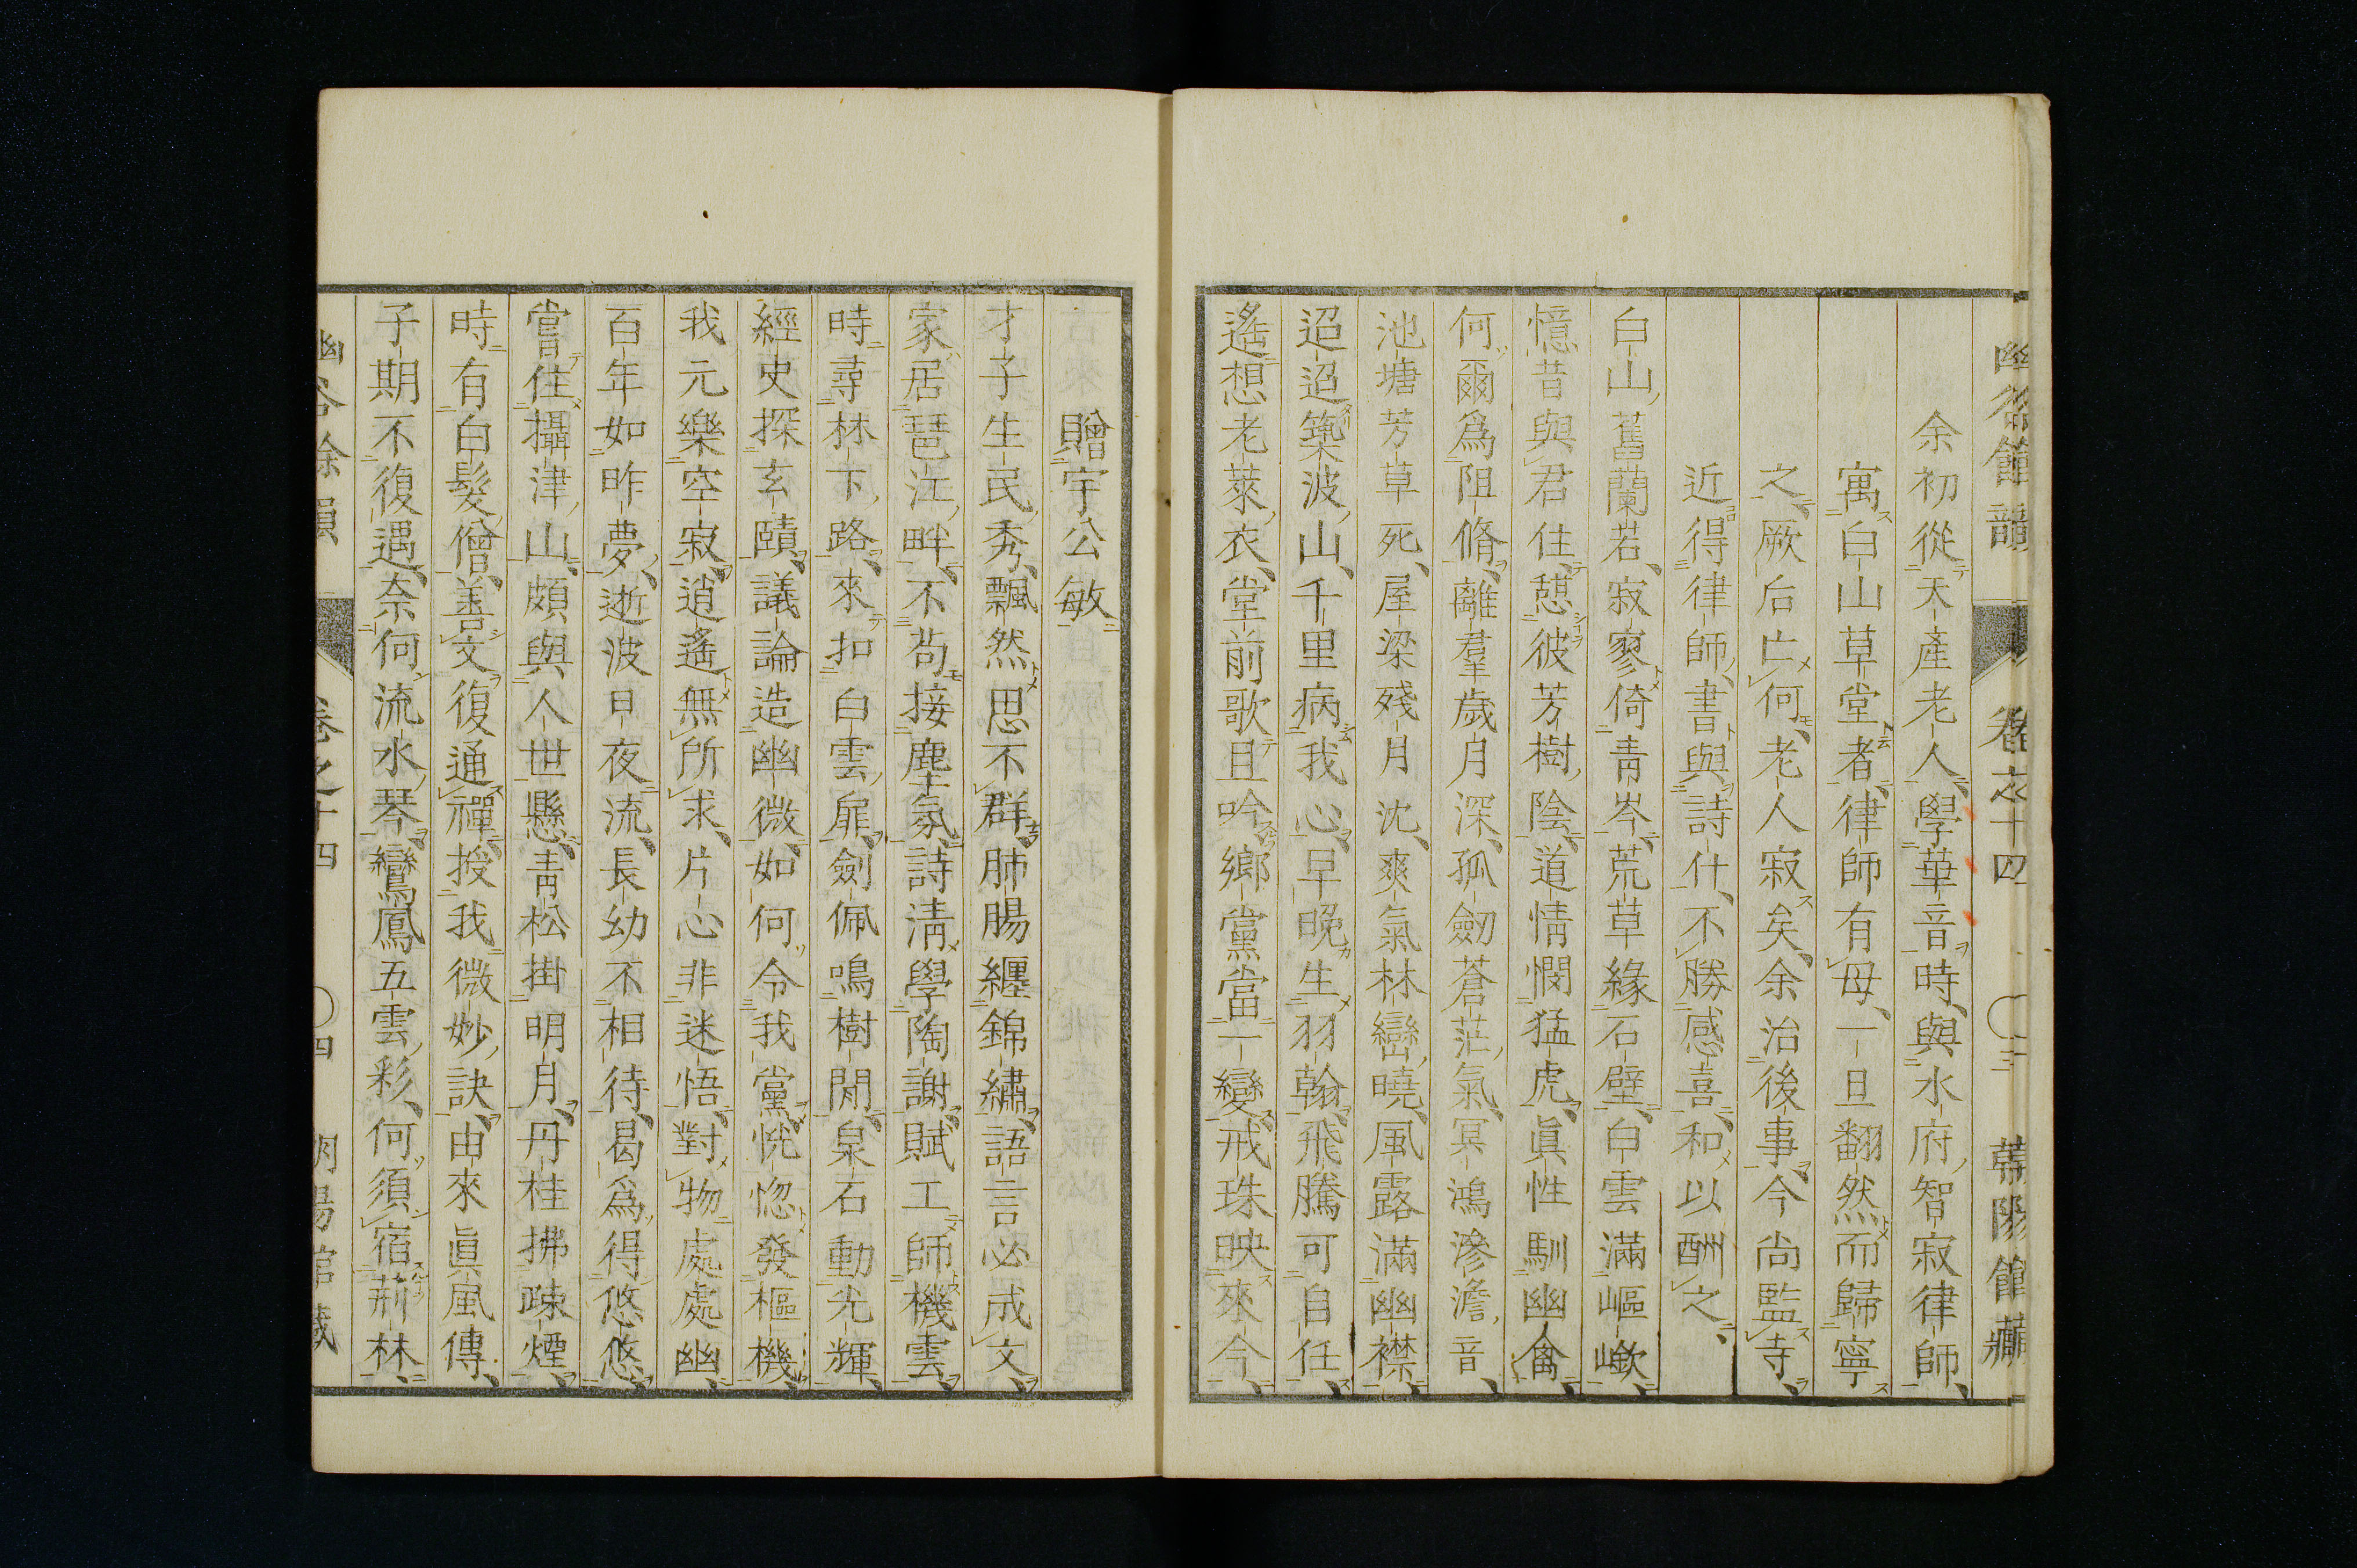 幽谷餘韻 卷之十四 〇三 朝陽館藏
余初從天產老人學華音時與水府智寂律師
寓白山草堂者律師有母一旦翻然而歸寧
之厥后亡何老人寂矣余治後事今尚監寺
近得律師書與詩什不勝感喜和以酬之
白山舊蘭若寂寥倚青岑荒草緣石壁白雲滿嶇嶔
憶昔與君住憩彼芳樹陰道情憫猛虎眞性馴幽禽
何爾爲阻脩離羣歲月深孤劒蒼茫氣冥鴻滲澹音
池塘芳草死屋梁殘月沈爽氣林巒曉風露滿幽襟
迢迢築波山千里病我心早晚生羽翰飛騰可自任
遙想老萊衣堂前歌且吟鄉黨當一變戒珠映來今
贈宇公敏
才子生民秀飄然思不群肺腸纏錦繡語言必成文
家居琶江畔不茍接塵氛詩淸學陶謝賦工師機雲
時尋林下路來扣白雲扉劍佩鳴樹閒泉石動光輝
經史探玄賾議論造幽微如何令我黨恍惚發樞機
我元樂空寂逍遙無所求片心非迷悟對物處處幽
百年如昨夢逝波日夜流長幼不相待曷爲得悠悠
嘗住攝津山頗與人世懸靑松掛明月丹桂拂疎煙
時有白髮僧善文復通禪授我微妙訣由來眞風傳
子期不復遇奈何流水琴鸞鳳五雲彩何須宿荊林
幽谷餘韻 卷之十四 〇四 朝陽館藏